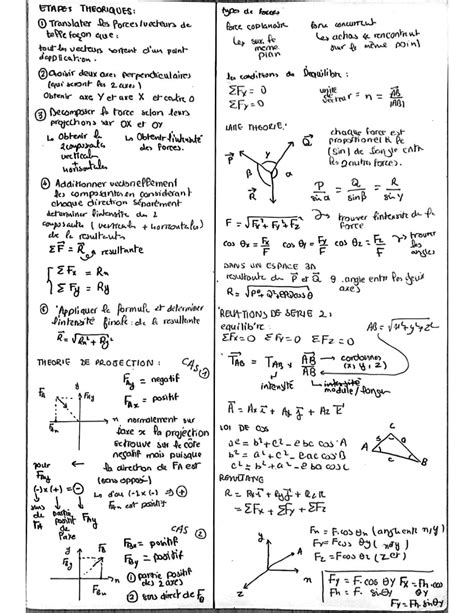 ETAPES THEORIQUES:
① Translater les forces/vecteurs de
telle façon que:
tout les vecteurs sortent d'un point
d'application.
② Choisir deux axes perpendiculaires
(qui seront les 2 axes)
Obtenir axe Y et axe X et centre O
③ Decomposer la force selon leurs
projections sur OX et OY
↳ Obtenir la
2 composants
verticale
horizontales
↳ Obtenir l'intensité
des forces.
④ Additionner vectoriellement
les composantes en considérant
chaque direction séparément
determiner l'intensité du 2
composants (verticale + horizontales)
de la resultante
ΣF = R resultante
Σ Fx = Rx
Σ Fy = Ry
⑤ Appliquer la formule et determiner
l'intensité finale de la resultante
R = √Rx² + Ry²
THEORIE DE PROJECTION: CAS ①
FAy = negatif
FAx = positif
n normalement sur
l'axe x la projection
se trouve sur le côté
negatif mais puisque
pour la direction de FA est
(sens opposé)
(-) x (+) = (-)
↳ d'ou (-) x (-) → (+)
FAx est positif
sens de FA
partie positif de l'axe
FAy
CAS ②
FBx = positif
FBy = positif
① partie positif
des 2 axes
② sens direct de FB
types de forces
force coplanaire
force concurrent
↳ sur le
même
plan
↳ les actions se rencontrent
sur le même point
les conditions de l'équilibre:
ΣFy = 0
ΣFx = 0
unité
vecteur = n = AB/|AB|
LAMIE THEORIE:
chaque force est
proportionnel à le
(sin) de l'angle entre
les 2 autres forces.
P Q R
α β γ
P/sin α = Q/sin β = R/sin γ
F = √Fx² + Fy² + Fz² → trouver l'intensité de la
Force
cos θx = Fx/F cos θy = Fy/F cos θz = Fz/F → trouver
les
angles
DANS UN ESPACE 3D
resultante du P et Q θ angle entre les deux
axes
R = √P² + Q² + 2PQ cos θ
RELATIONS DE SERIE 2:
équilibre:
ΣFx = 0 ΣFy = 0 ΣFz = 0
AB = √x² + y² + z²
TAB = TAB x AB/AB → cordonnées
(x, y, z)
intensité
↳ intensité
module/longueur
A = Ax i + Ay j + Az k
LOI DE COS
a² = b² + c² - 2bc cos A
b² = a² + c² - 2ac cos B
c² = b² + a² - 2ba cos C
A B C
RESULTANTE
R = Rx i + Ry j + Rz k
= ΣFx + ΣFy + ΣFz
y x z A
Fx = F cos θx (angle entre x/y)
Fy = F cos θy (x θy)
Fz = F cos θz (z et F)
Fy = F. cos θy
Fh = F. sin θy
Fx = Fh. cos θy
Fz = Fh. sin θy